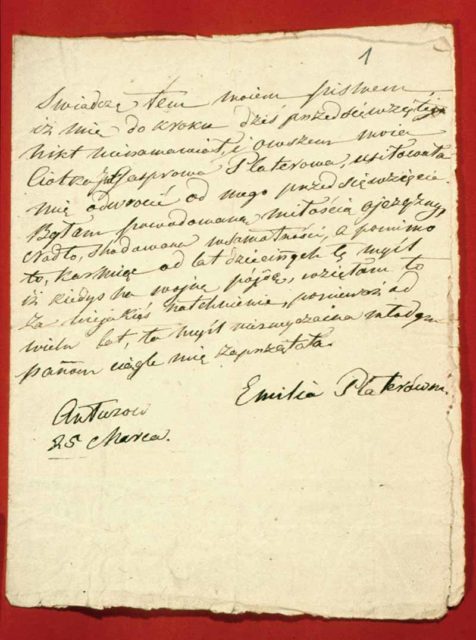 1
Swiadczę tem moiem pismem,
iż mię do kroku dziś przedsięwziętego
nikt nienamawiał, i owszem moia
Ciotka Kasprowa Platerowa, usiłowała
mię odwrócić od mego przedsięwzięcia
Byłam powodowana miłością ojczyzny,
a pomimo
to, karmiąc od lat dziecinnych tę myśl
iż kiedyś na wojnę pójdę, wzięłam to
za niejakieś natchnienie, ponieważ od
wielu lat, ta myśl niezwyczaina młodym
pannom ciągle mię zaprzątała.
Emilia Platerówn.
Antuzow
25 Marca.